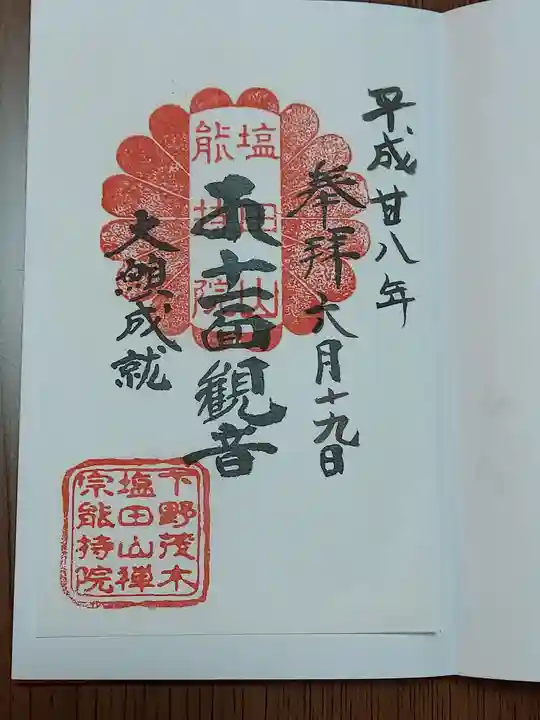 平成廿八年
奉拝 六月十九日
十一面観音
大願成就
塩田山
能持院
下野茂木
塩田山禅
宗能持院